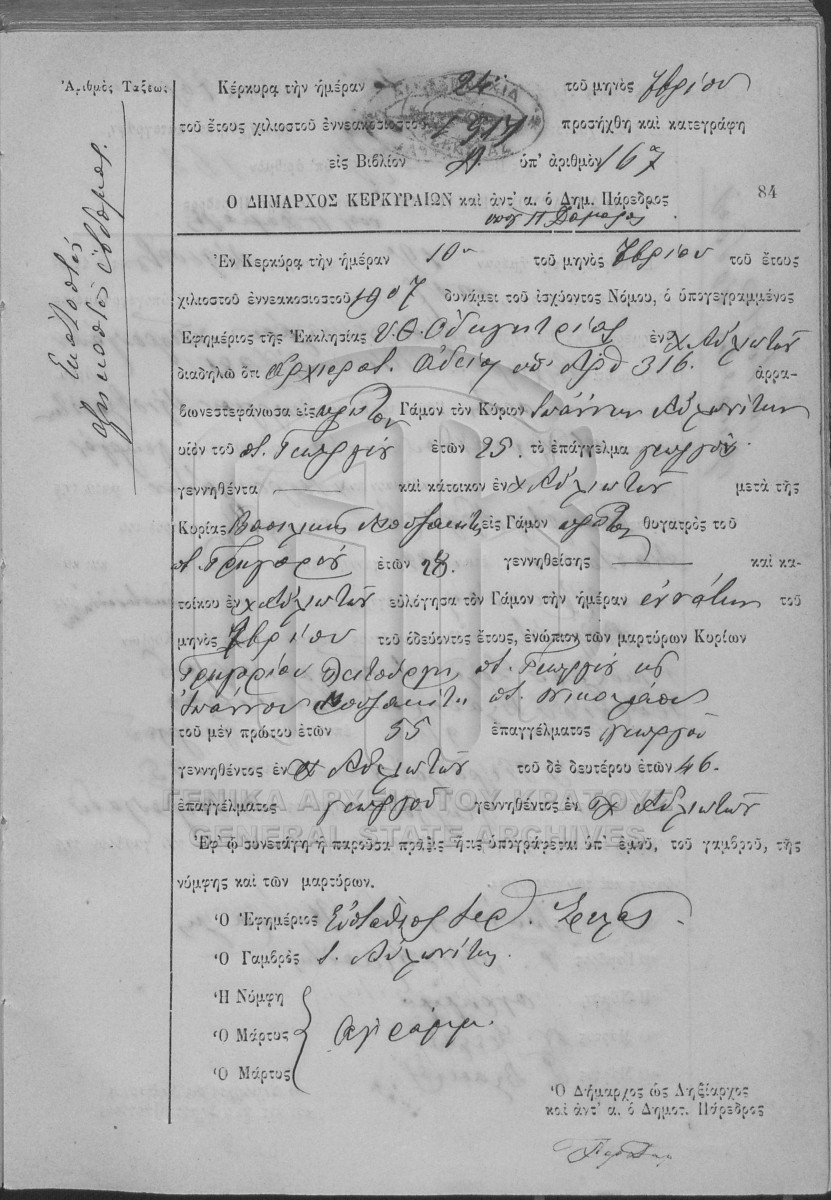 Ἀριθμὸς Τάξεως
Ἑκατοστὸς
ἑξηκοστὸς ἕβδομος.
Κέρκυρα τὴν ἡμέραν 24 τοῦ μηνὸς 7βρίου
τοῦ ἔτους χιλιοστοῦ ἐννεακοσιοστοῦ 1917 προσήχθη καὶ κατεγράφη
εἰς Βιβλίον Α. ὑπ' ἀριθμὸν 167
Ὁ ΔΗΜΑΡΧΟΣ ΚΕΡΚΥΡΑΙΩΝ καὶ ἀντ' α. ὁ Δημ. Πάρεδρος
84
Ἐν Κερκύρᾳ τὴν ἡμέραν 10 τοῦ μηνὸς 7βρίου τοῦ ἔτους
χιλιοστοῦ ἐννεακοσιοστοῦ 1907 δυνάμει τοῦ ἰσχύοντος Νόμου, ὁ ὑπογεγραμμένος
Ἐφημέριος τῆς Ἐκκλησίας Υ.Θ. Ὁδηγητρίας ἐν χ Αὐλιωτῶν
διαδηλῶ ὅτι Ἀρχιερατ. ἀδείᾳ ὑπ' Ἀρθ 316. ἀρρα-
βωνεστεφάνωσα εἰς πρῶτον Γάμον τὸν Κύριον Ἰωάννην Αὐλωνίτην
υἱὸν τοῦ π. Γεωργίου ἐτῶν 25. τὸ ἐπάγγελμα γεωργὸν
γεννηθέντα — καὶ κάτοικον ἐν χ Αὐλιωτῶν μετὰ τῆς
Κυρίας Βασιλικῆς Μουζακίτη εἰς Γάμον πρῶτον θυγατρὸς τοῦ
π. Γρηγορίου ἐτῶν 28. γεννηθείσης — καὶ κα-
τοίκου ἐν χ Αὐλιωτῶν εὐλόγησα τὸν Γάμον τὴν ἡμέραν ἐννάτην τοῦ
μηνὸς 7βρίου τοῦ ὁδεύοντος ἔτους, ἐνώπιον τῶν μαρτύρων Κυρίων
Γρηγορίου Λειτούργη π. Γεωργίου κς
Ἰωάννου Μουζακίτη π. Νικολάου
τοῦ μὲν πρώτου ἐτῶν 55 ἐπαγγέλματος γεωργοῦ
γεννηθέντος ἐν χ Αὐλιωτῶν τοῦ δὲ δευτέρου ἐτῶν 46.
ἐπαγγέλματος γεωργοῦ γεννηθέντος ἐν χ Αὐλιωτῶν
ΓΕΝΙΚΑ ΑΡΧΕΙΑ ΤΟΥ ΚΡΑΤΟΥΣ
GENERAL STATE ARCHIVES
Ἐφ' ᾧ συνετάγη ἡ παροῦσα πρᾶξις ἥτις ὑπογράφεται ὑπ' ἐμοῦ, τοῦ γαμβροῦ, τῆς
νύμφης καὶ τῶν μαρτύρων.
Ὁ Ἐφημέριος Εὐστάθιος
Ὁ Γαμβρὸς Ι. Αὐλωνίτης.
Ἡ Νύμφη
Ὁ Μάρτυς ἀγράμμ.
Ὁ Μάρτυς
Ὁ Δήμαρχος ὡς Ληξίαρχος
καὶ ἀντ' α. ὁ Δημοτ. Πάρεδρος